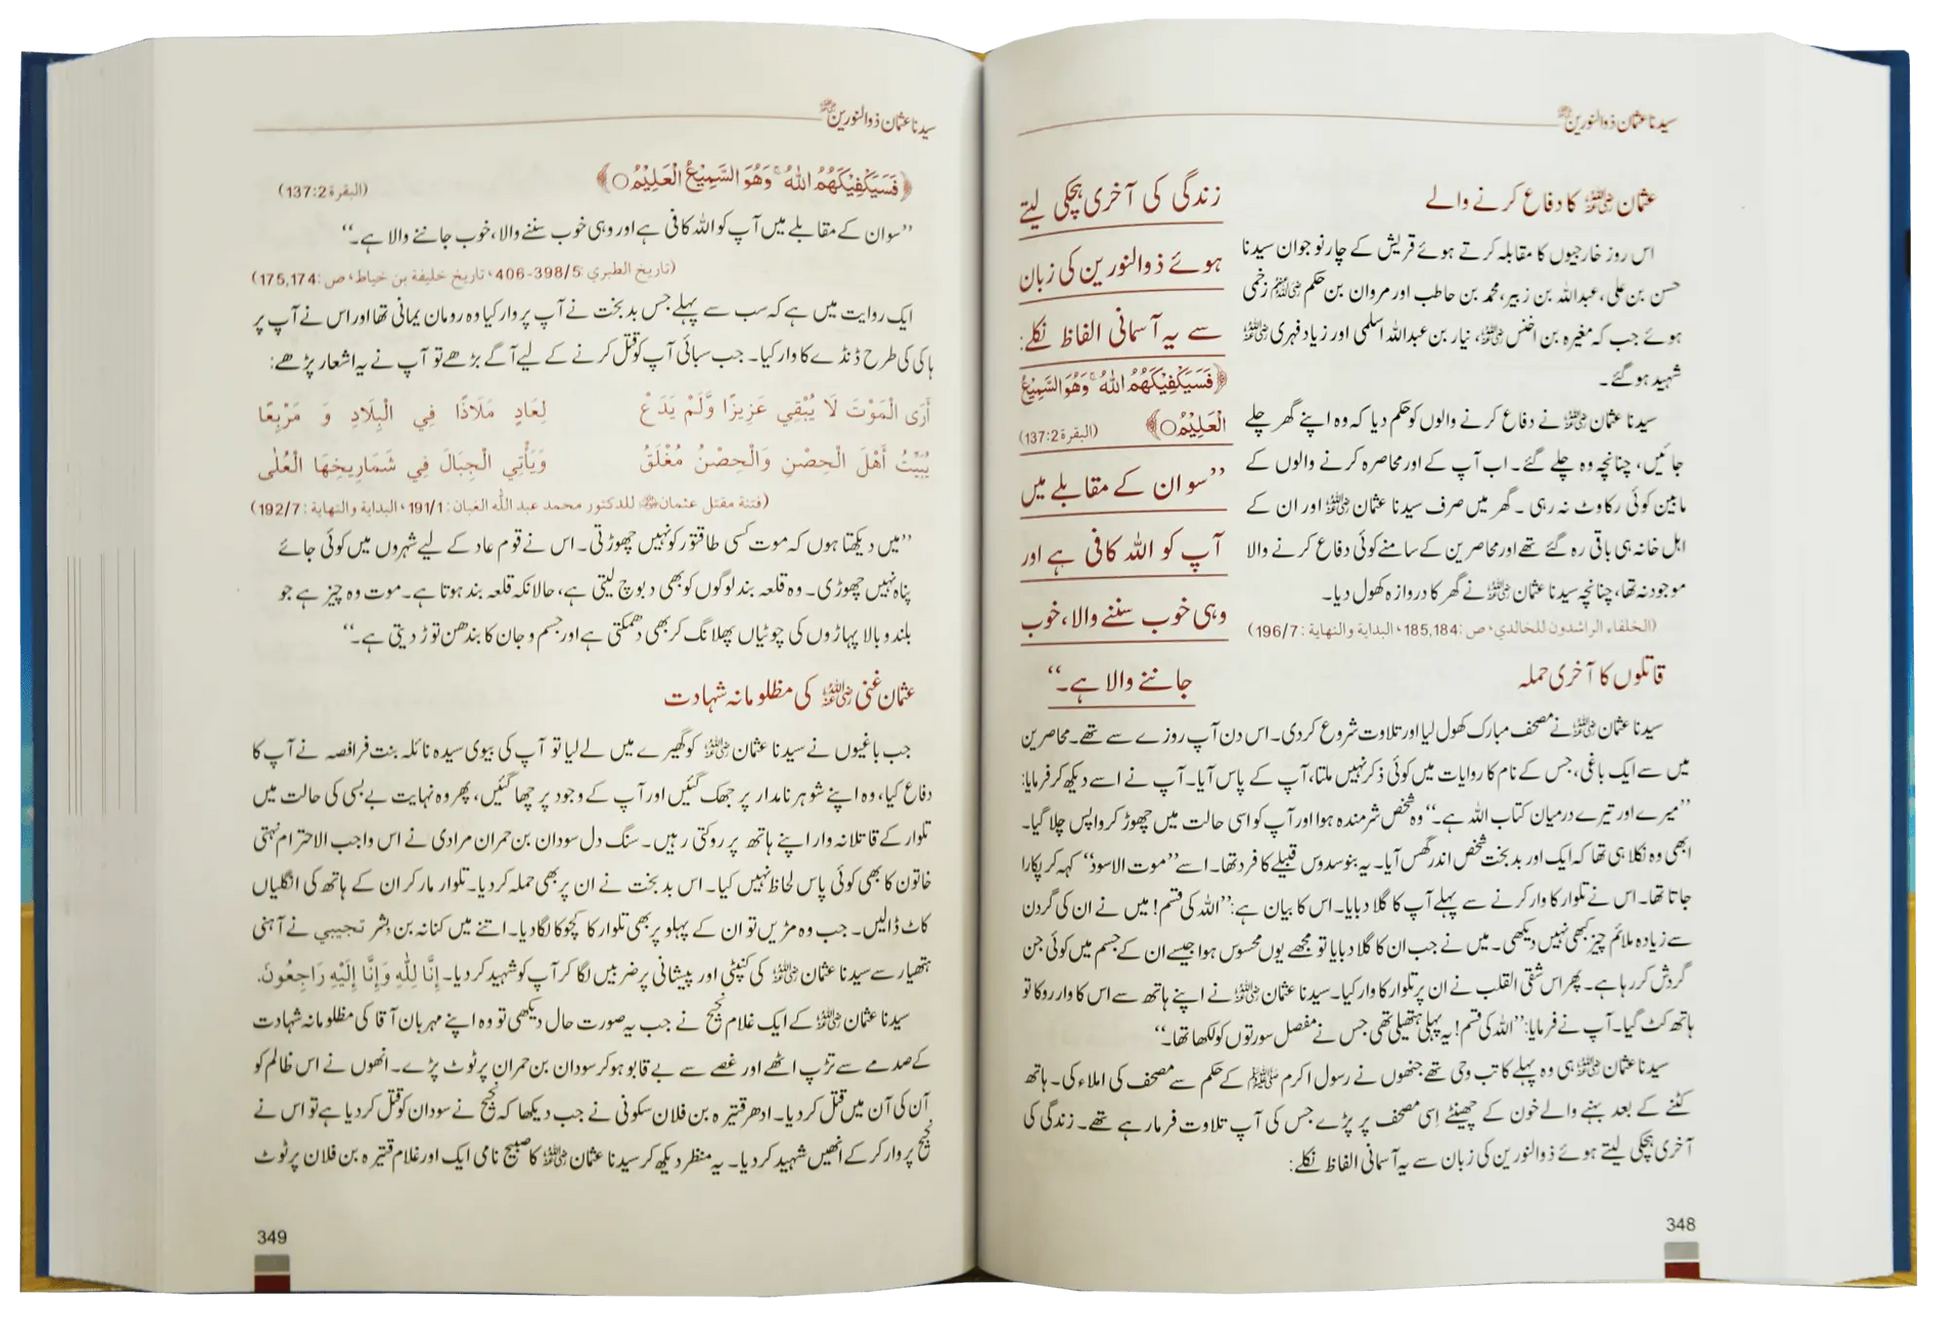 سیدنا عثمان ذوالنورین رضی اللہ عنہ
عثمان رضی اللہ عنہ کا دفاع کرنے والے
اس روز خارجیوں کا مقابلہ کرتے ہوئے قریش کے چار نوجوان سیدنا
حسن بن علی، عبداللہ بن زبیر، محمد بن حاطب اور مروان بن حکم رضی اللہ عنہم زخمی
ہوئے جب کہ مغیرہ بن اخنس رضی اللہ عنہ، نیار بن عبداللہ اسلمی اور زیاد فہری رضی اللہ عنہ
شہید ہو گئے۔
سیدنا عثمان رضی اللہ عنہ نے دفاع کرنے والوں کو حکم دیا کہ وہ اپنے گھر چلے
جائیں، چنانچہ وہ چلے گئے۔ اب آپ کے اور محاصرہ کرنے والوں کے
مابین کوئی رکاوٹ نہ رہی۔ گھر میں صرف سیدنا عثمان رضی اللہ عنہ اور ان کے
اہل خانہ ہی باقی رہ گئے تھے اور محاصرین کے سامنے کوئی دفاع کرنے والا
موجود نہ تھا، چنانچہ سیدنا عثمان رضی اللہ عنہ نے گھر کا دروازہ کھول دیا۔
(الخلفاء الراشدون للخالدي، ص: 185,184، البداية والنهاية: 196/7)
زندگی کی آخری ہچکی لیتے
ہوئے ذوالنورین کی زبان
سے یہ آسمانی الفاظ نکلے:
﴿فَسَيَكْفِيكَهُمُ اللّٰهُ ۚ وَهُوَ السَّمِيْعُ
الْعَلِيْمُ○﴾ (البقرۃ 137:2)
’’سو ان کے مقابلے میں
آپ کو اللہ کافی ہے اور
وہی خوب سننے والا، خوب
جاننے والا ہے۔‘‘
قاتلوں کا آخری حملہ
سیدنا عثمان رضی اللہ عنہ نے مصحف مبارک کھول لیا اور تلاوت شروع کردی۔ اس دن آپ روزے سے تھے۔ محاصرین
میں سے ایک باغی، جس کے نام کا روایات میں کوئی ذکر نہیں ملتا، آپ کے پاس آیا۔ آپ نے اسے دیکھ کر فرمایا:
’’میرے اور تیرے درمیان کتاب اللہ ہے۔‘‘ وہ شخص شرمندہ ہوا اور آپ کو اسی حالت میں چھوڑ کر واپس چلا گیا۔
ابھی وہ نکلا ہی تھا کہ ایک اور بد بخت شخص اندر گھس آیا۔ یہ بنو سدوس قبیلے کا فرد تھا۔ اسے ’’موت الاسود‘‘ کہہ کر پکارا
جاتا تھا۔ اس نے تلوار کا وار کرنے سے پہلے آپ کا گلا دبایا۔ اس کا بیان ہے: ’’اللہ کی قسم! میں نے ان کی گردن
سے زیادہ ملائم چیز کبھی نہیں دیکھی۔ میں نے جب ان کا گلا دبایا تو مجھے یوں محسوس ہوا جیسے ان کے جسم میں کوئی جن
گردش کر رہا ہے۔ پھر اس شقی القلب نے ان پر تلوار کا وار کیا۔ سیدنا عثمان رضی اللہ عنہ نے اپنے ہاتھ سے اس کا وار روکا تو
ہاتھ کٹ گیا۔ آپ نے فرمایا: ’’اللہ کی قسم! یہ پہلی ہتھیلی تھی جس نے مفصل سورتوں کو لکھا تھا۔‘‘
سیدنا عثمان رضی اللہ عنہ ہی وہ پہلے کاتب وحی تھے جنھوں نے رسول اکرم صلی اللہ علیہ وسلم کے حکم سے مصحف کی املاء کی۔ ہاتھ
کٹنے کے بعد بہنے والے خون کے چھینٹے اِسی مصحف پر پڑے جس کی آپ تلاوت فرما رہے تھے۔ زندگی کی
آخری ہچکی لیتے ہوئے ذوالنورین کی زبان سے یہ آسمانی الفاظ نکلے:
348
سیدنا عثمان ذوالنورین رضی اللہ عنہ
﴿فَسَيَكْفِيكَهُمُ اللّٰهُ ۚ وَهُوَ السَّمِيْعُ الْعَلِيْمُ○﴾ (البقرۃ 137:2)
’’سو ان کے مقابلے میں آپ کو اللہ کافی ہے اور وہی خوب سننے والا، خوب جاننے والا ہے۔‘‘
(تاريخ الطبري: 398/5-406، تاريخ خليفة بن خياط، ص: 175,174)
ایک روایت میں ہے کہ سب سے پہلے جس بد بخت نے آپ پر وار کیا وہ رومان یمانی تھا اور اس نے آپ پر
ہاکی کی طرح ڈنڈے کا وار کیا۔ جب سبائی آپ کو قتل کرنے کے لیے آگے بڑھے تو آپ نے یہ اشعار پڑھے:
أَرَى الْمَوْتَ لَا يُبْقِي عَزِيزًا وَّلَمْ يَدَعْ لِعَادٍ مَّلَاذًا فِي الْبِلَادِ وَ مَرْبِعًا
يُبَيِّتُ أَهْلَ الْحِصْنِ وَالْحِصْنُ مُغْلَقُ وَيَأْتِي الْجِبَالَ فِي شَمَارِيخِهَا الْعُلٰى
(فتنة مقتل عثمان رضی اللہ عنہ للدكتور محمد عبد اللّٰه الغبان: 191/1، البداية والنهاية: 192/7)
’’میں دیکھتا ہوں کہ موت کسی طاقتور کو نہیں چھوڑتی۔ اس نے قوم عاد کے لیے شہروں میں کوئی جائے
پناہ نہیں چھوڑی۔ وہ قلعہ بند لوگوں کو بھی دبوچ لیتی ہے، حالانکہ قلعہ بند ہوتا ہے۔ موت وہ چیز ہے جو
بلند و بالا پہاڑوں کی چوٹیاں پھلانگ کر بھی دھمکتی ہے اور جسم و جان کا بندھن توڑ دیتی ہے۔‘‘
عثمان غنی رضی اللہ عنہ کی مظلومانہ شہادت
جب باغیوں نے سیدنا عثمان رضی اللہ عنہ کو گھیرے میں لے لیا تو آپ کی بیوی سیدہ نائلہ بنت فرافصہ نے آپ کا
دفاع کیا، وہ اپنے شوہر نامدار پر جھک گئیں اور آپ کے وجود پر چھا گئیں، پھر وہ نہایت بے بسی کی حالت میں
تلوار کے قاتلانہ وار اپنے ہاتھ پر روکتی رہیں۔ سنگ دل سودان بن حمران مرادی نے اس واجب الاحترام نہتی
خاتون کا بھی کوئی پاس لحاظ نہیں کیا۔ اس بد بخت نے ان پر بھی حملہ کردیا۔ تلوار مار کر ان کے ہاتھ کی انگلیاں
کاٹ ڈالیں۔ جب وہ مڑیں تو ان کے پہلو پر بھی تلوار کا کچوکا لگا دیا۔ اتنے میں کنانہ بن بشر تجیبی نے آہنی
ہتھیار سے سیدنا عثمان رضی اللہ عنہ کی کنپٹی اور پیشانی پر ضربیں لگا کر آپ کو شہید کردیا۔ إِنَّا لِلّٰهِ وَإِنَّا إِلَيْهِ رَاجِعُونَ.
سیدنا عثمان رضی اللہ عنہ کے ایک غلام نجیح نے جب یہ صورت حال دیکھی تو وہ اپنے مہربان آقا کی مظلومانہ شہادت
کے صدمے سے تڑپ اٹھے اور غصے سے بے قابو ہو کر سودان بن حمران پر ٹوٹ پڑے۔ انھوں نے اس ظالم کو
آن کی آن میں قتل کردیا۔ ادھر قتیرہ بن فلان سکونی نے جب دیکھا کہ نجیح نے سودان کو قتل کردیا ہے تو اس نے
نجیح پر وار کر کے انھیں شہید کردیا۔ یہ منظر دیکھ کر سیدنا عثمان رضی اللہ عنہ کا صبیح نامی ایک اور غلام قتیرہ بن فلان پر ٹوٹ
349